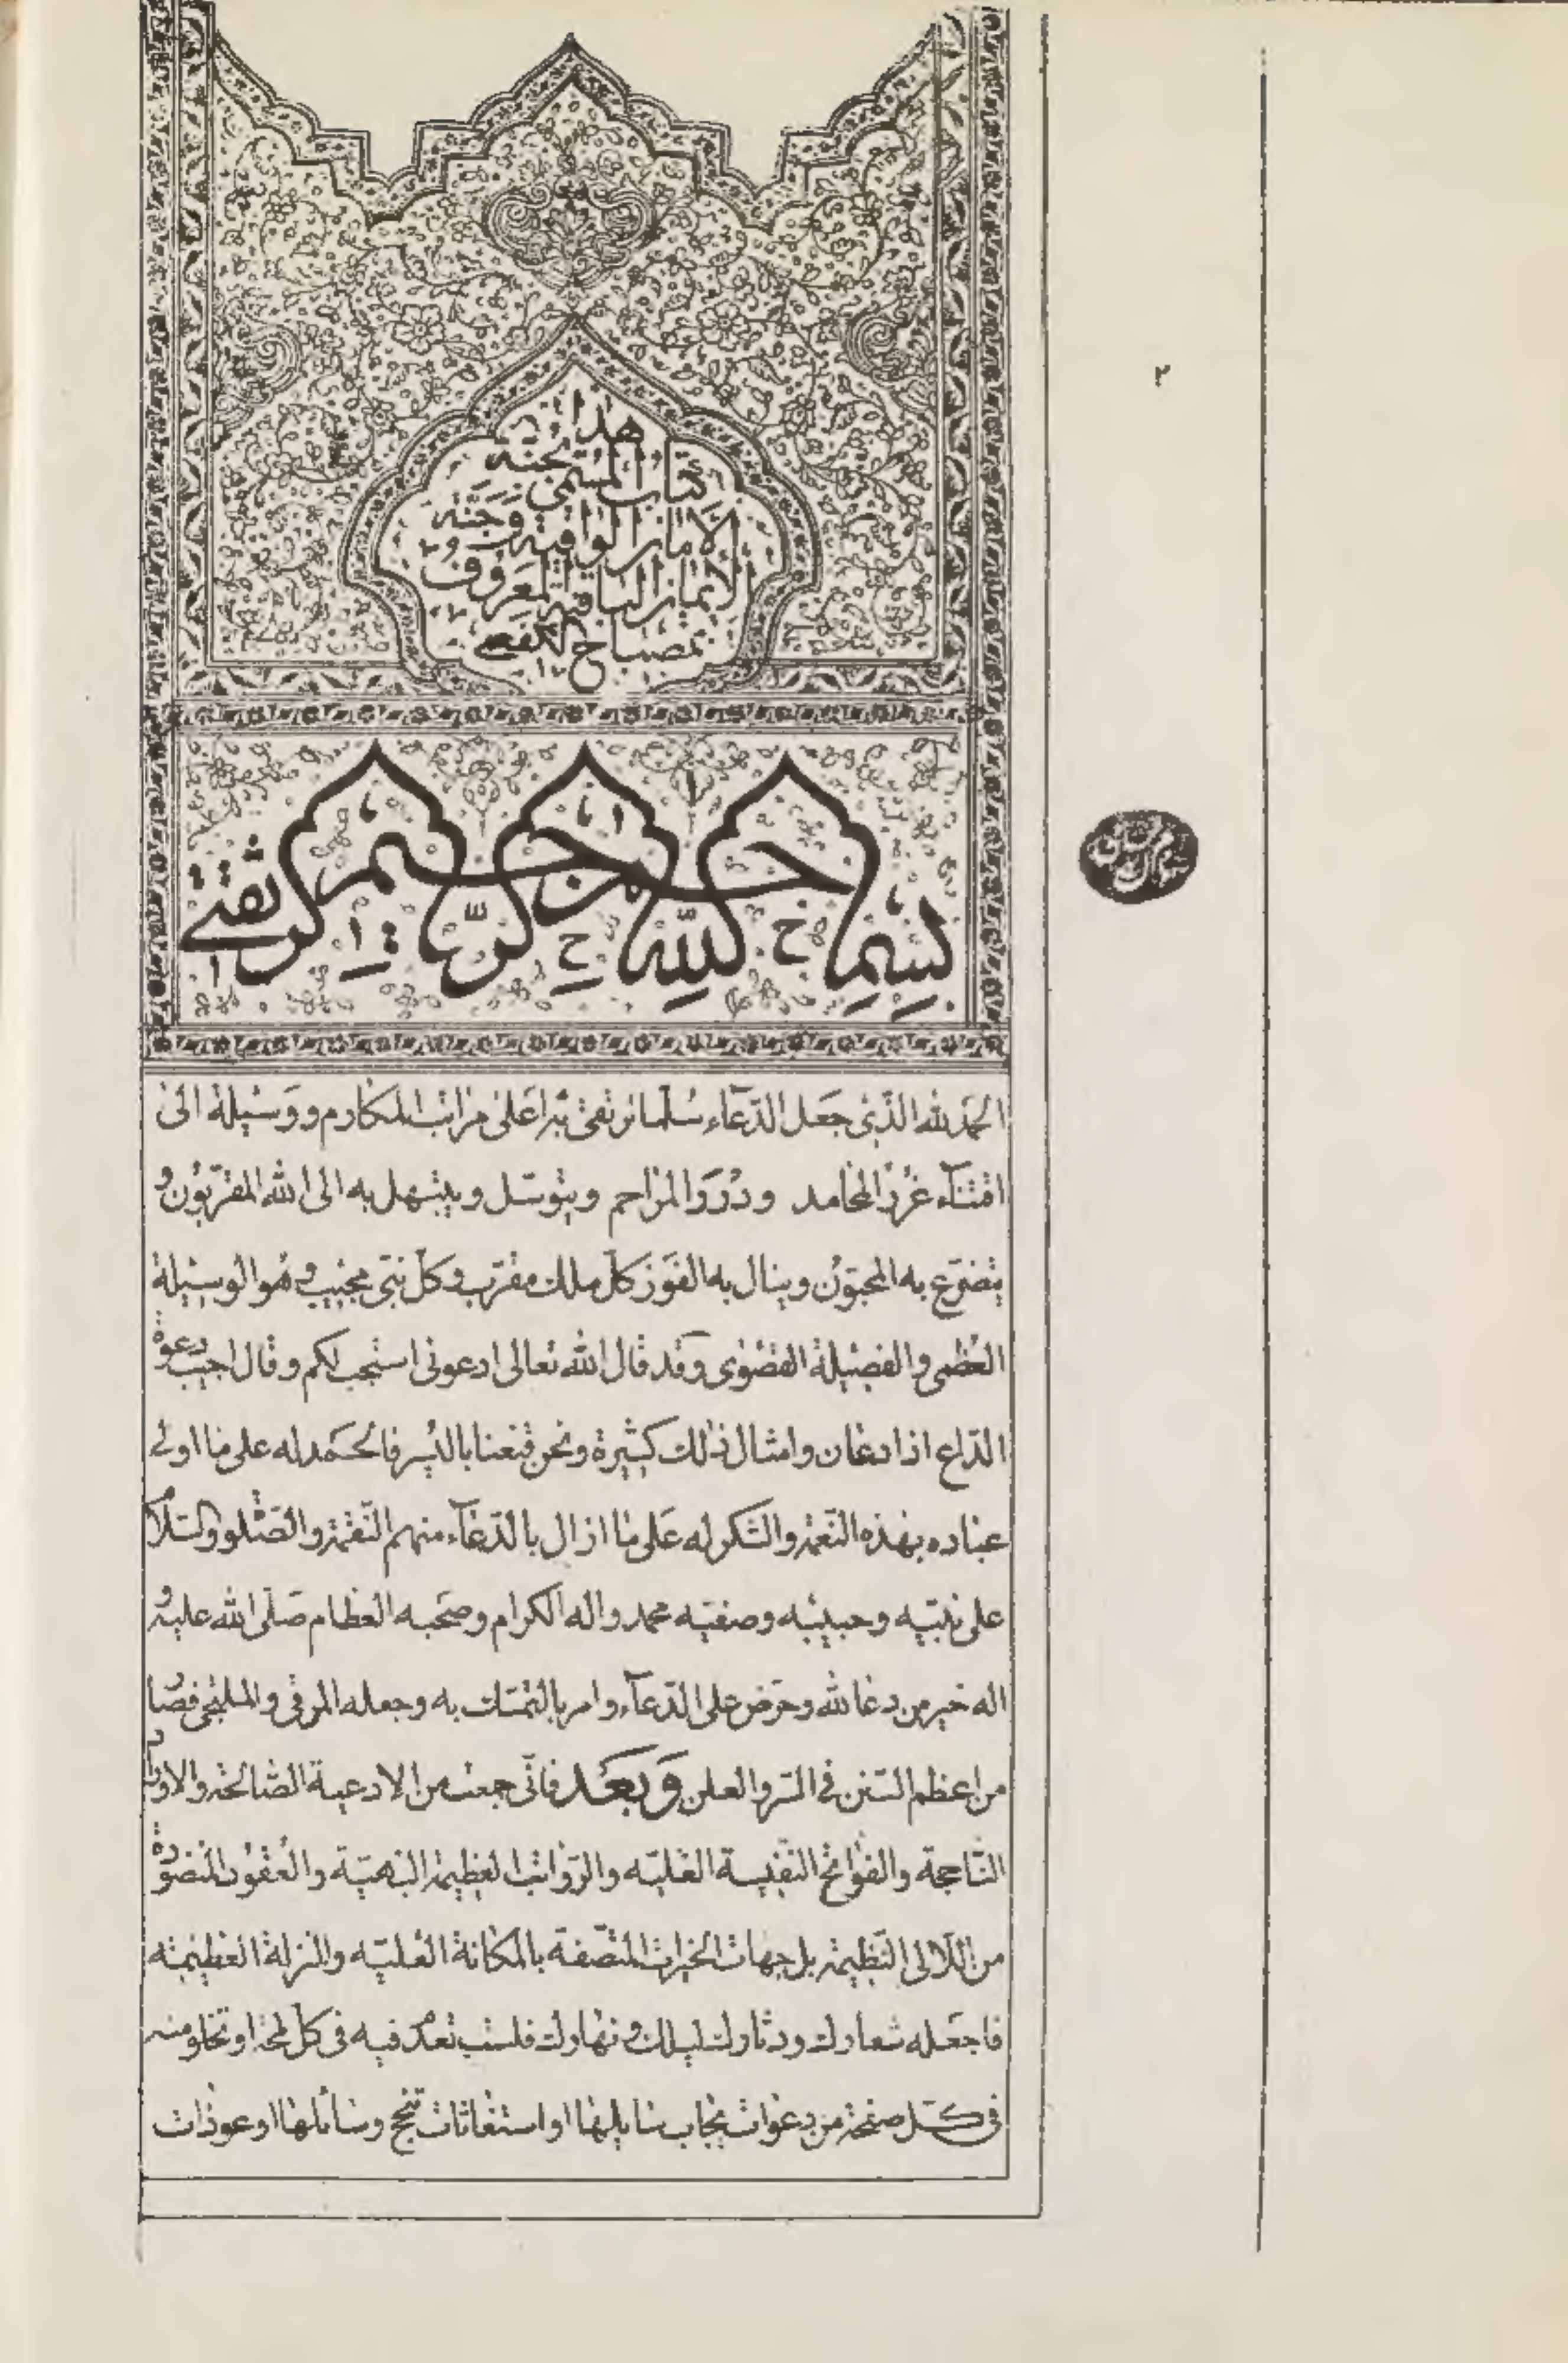 ٢
هذا
كتاب المسمى بجنة
الامان الواقية وجنة
الايمان الباقية المعروف
بمصباح الكفعمي
بسم الله الرحمن الرحيم وبه ثقتي
الحمد لله الذي جعل الدعاء سلما نرتقي به اعلى مراتب المكارم ووسيلة الى
اقتناء غرر المحامد ودرر المراحم ويتوسل ويبتهل به الى الله المقربون و
يتضرع به المحبون وينال به الفوز كل ملك مقرب وكل نبي مجيب وهو الوسيلة
العظمى والفضيلة القصوى وقد قال الله تعالى ادعوني استجب لكم وقال اجيب دعوة
الداع اذا دعان وامثال ذلك كثيرة ونحن قنعنا باليسير فالحمد له على ما اولى
عباده بهذه النعمة والشكر له على ما ازال بالدعاء منهم النقمة والصلوة والسلام
على نبيه وحبيبه وصفيه محمد واله الكرام وصحبه العظام صلى الله عليه و
اله خير من دعا لله وحرض على الدعاء وامر بالتمسك به وجعله المرقى والملتجى فصا
من اعظم السنن في السر والعلن وبعد فاني جمعت من الادعية الصالحة والاوراد
الناجحة والفواتح النفيسة العلية والرواتب العظيمة البهية والعقود المنضودة
من اللالي النظيمة بل جهات الخيرات المتصفة بالمكانة العلية والمنزلة العظيمة
فاجعله شعارك ودثارك ليلك ونهارك فلست تعدم فيه في كل لمحة او تخلو منه
في كل صفحة من دعوات يجاب سايلها او استغاثات تنجح وسائلها او عوذات